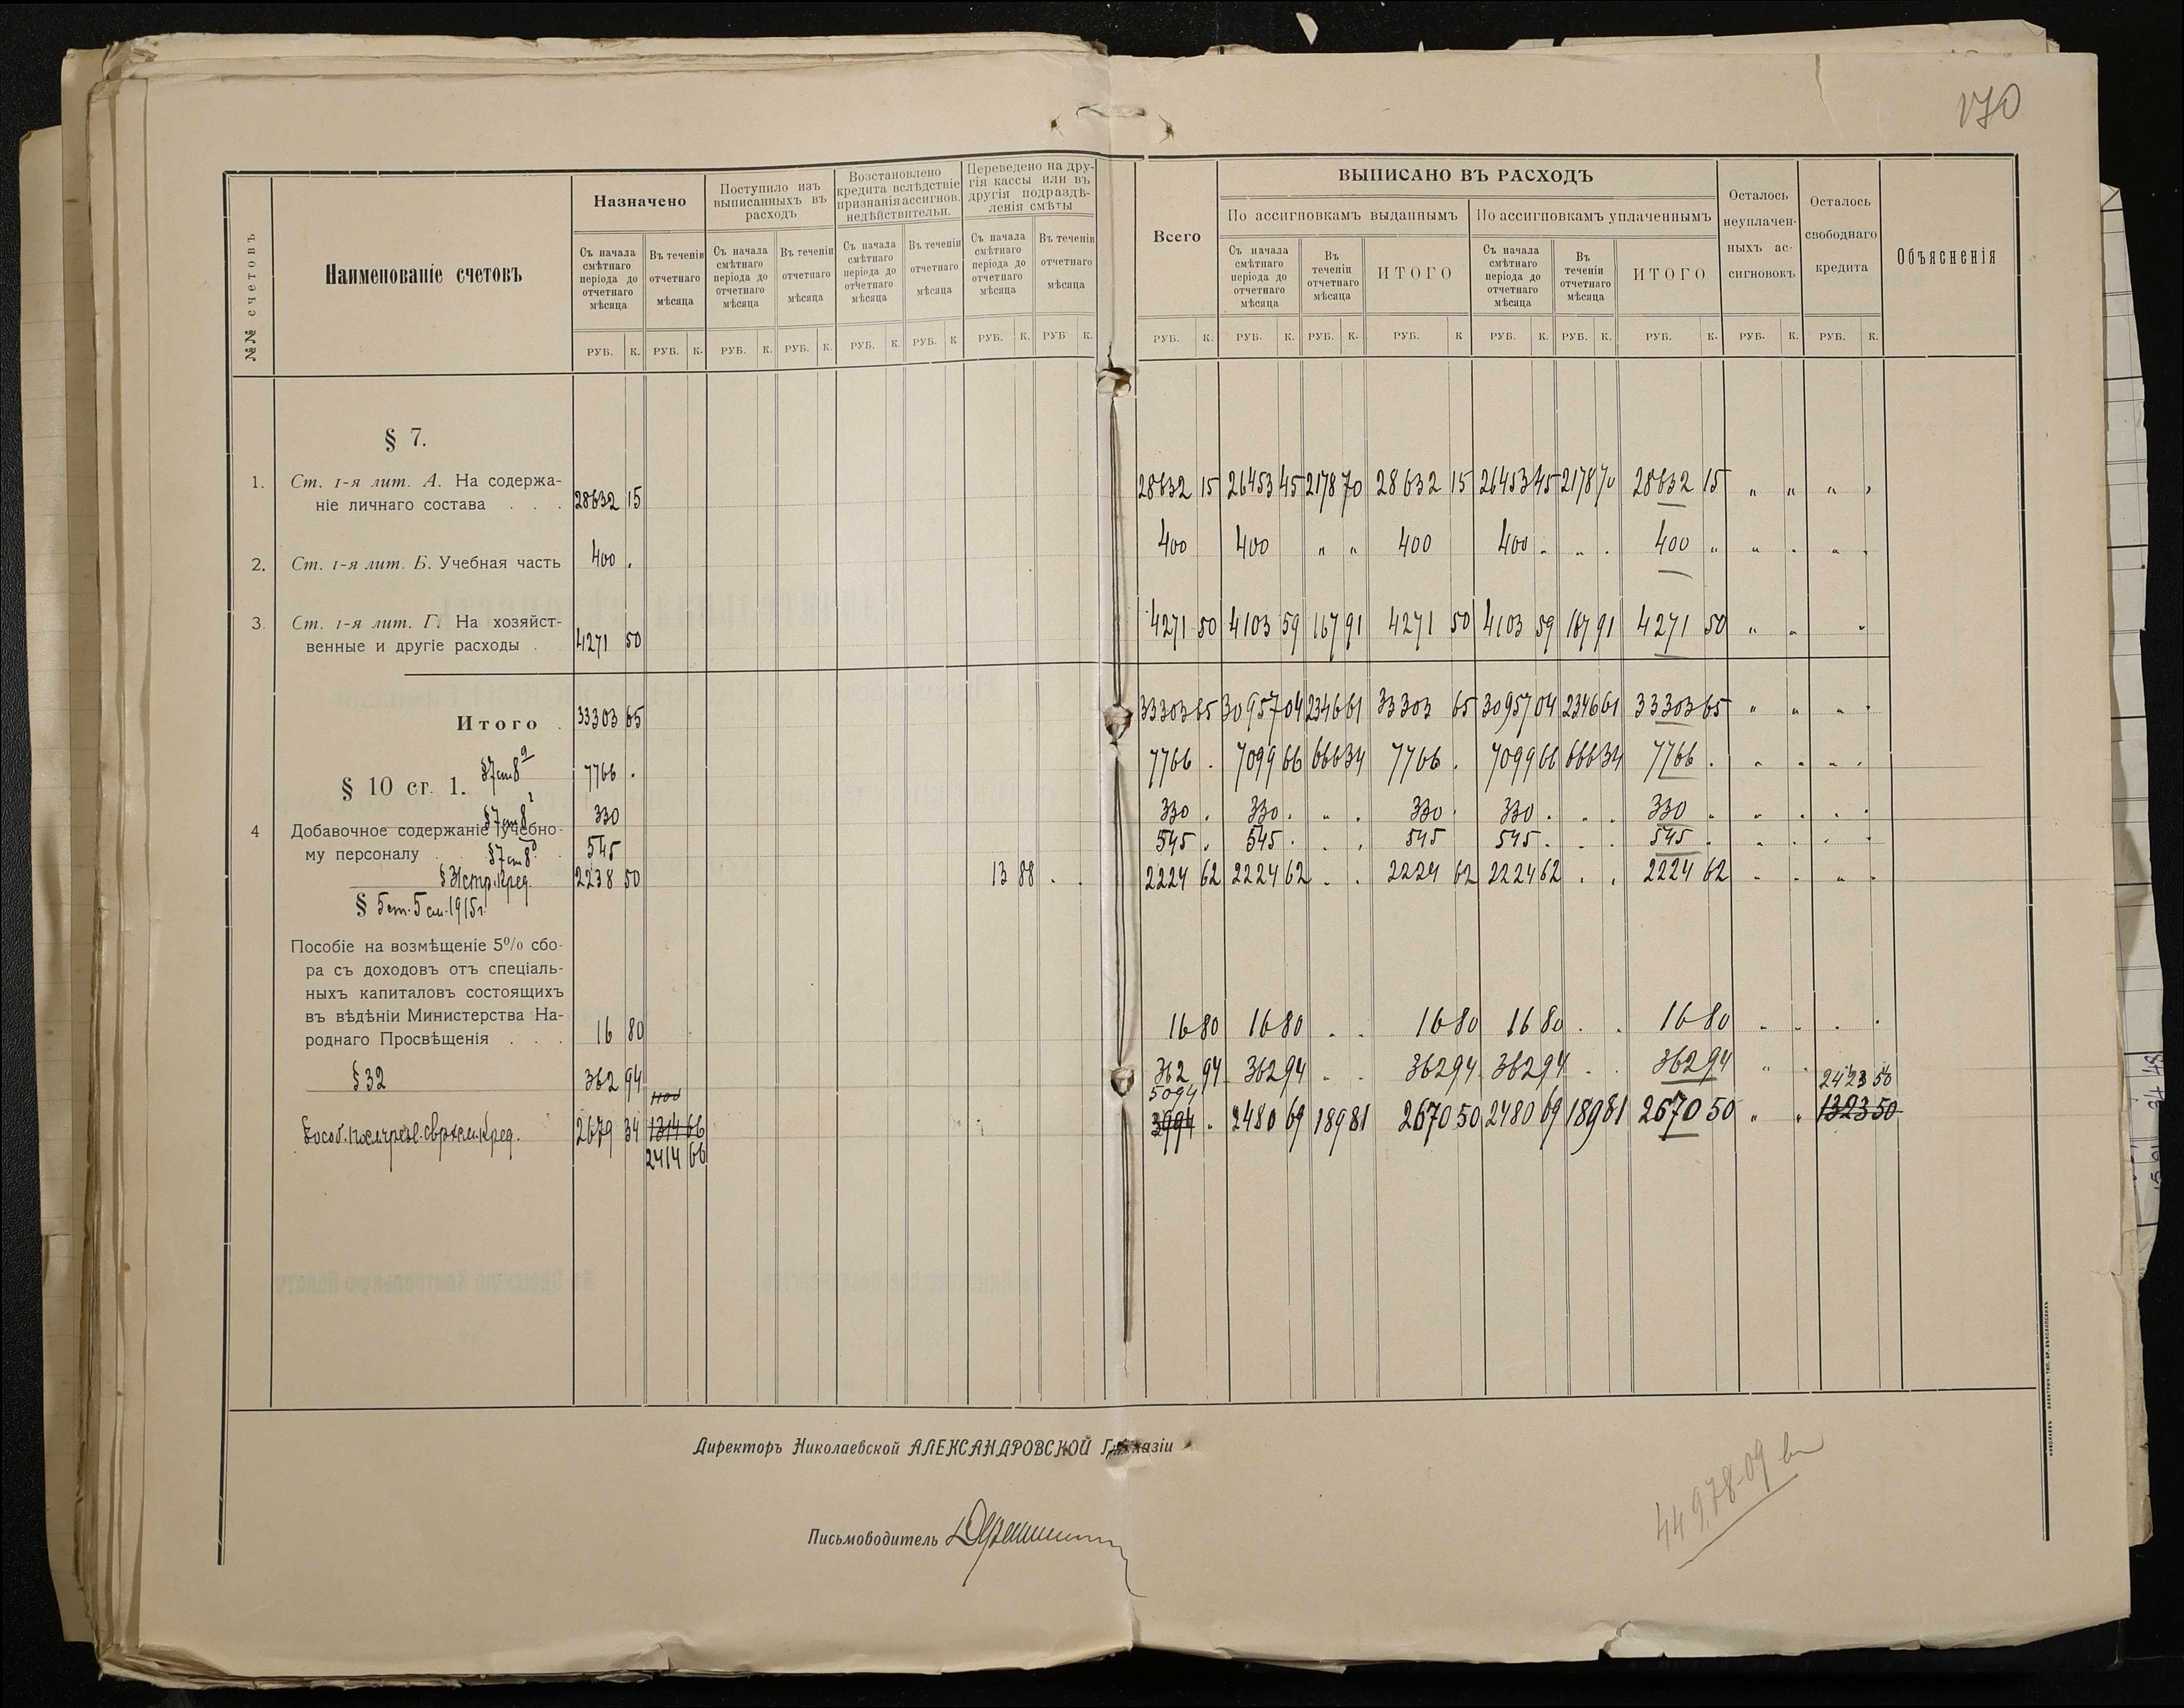 170
№№ счетовъ
Наименованіе счетовъ
Назначено
Съ начала смѣтнаго періода до отчетнаго мѣсяца
Въ теченіи отчетнаго мѣсяца
Поступило изъ выписанныхъ въ расходъ
Съ начала смѣтнаго періода до отчетнаго мѣсяца
Въ теченіи отчетнаго мѣсяца
Возстановлено кредита вслѣдствіе признанія ассигнов. недѣйствительн.
Съ начала смѣтнаго періода до отчетнаго мѣсяца
Въ теченіи отчетнаго мѣсяца
Переведено на другія кассы или въ другія подраздѣленія смѣты
Съ начала смѣтнаго періода до отчетнаго мѣсяца
Въ теченіи отчетнаго мѣсяца
Всего
ВЫПИСАНО ВЪ РАСХОДЪ
По ассигновкамъ выданнымъ
Съ начала смѣтнаго періода до отчетнаго мѣсяца
Въ теченіи отчетнаго мѣсяца
ИТОГО
По ассигновкамъ уплаченнымъ
Съ начала смѣтнаго періода до отчетнаго мѣсяца
Въ теченіи отчетнаго мѣсяца
ИТОГО
Осталось неуплаченныхъ ассигновокъ
Осталось свободнаго кредита
Объясненія
РУБ. К. РУБ. К. РУБ. К. РУБ. К. РУБ. К. РУБ. К РУБ. К. РУБ К. РУБ. К. РУБ. К. РУБ. К. РУБ. К РУБ. К. РУБ. К. РУБ. К. РУБ. К. РУБ. К.
§ 7.
1. Ст. 1-я лит. А. На содержа-
ніе личнаго состава . . . 28632 15 28632 15 26453 45 2178 70 28632 15 26453 45 2178 70 28632 15 " " " "
2. Ст. 1-я лит. Б. Учебная часть 400 . 400 400 " " 400 400 . . . 400 " " . " .
3. Ст. 1-я лит. Г. На хозяйст-
венные и другіе расходы . 4271 50 4271 50 4103 59 167 91 4271 50 4103 59 167 91 4271 50 " " "
Итого . 33303 65 33303 65 30957 04 2346 61 33303 65 30957 04 2346 61 33303 65 " " " "
§ 10 ст. 1. §7 ст 8² 7766 . 7766 . 7099 66 666 34 7766 . 7099 66 666 34 7766 . " " " "
§7 ст 8¹ 330 330 . 330 . " . 330 . 330 . . . 330 " " . . .
4 Добавочное содержаніе учебно-
му персоналу . §7 ст 8³. 545 545 . 545 . . . 545 545 . . . 545 . " . . "
§31 стр. Кред. 2238 50 13 88 . . 2224 62 2224 62 . . 2224 62 2224 62 . . 2224 62 " . " .
§ 5 ст. 5 см. 1915 г.
Пособіе на возмѣщеніе 5% сбо-
ра съ доходовъ отъ спеціаль-
ныхъ капиталовъ состоящихъ
въ вѣдѣніи Министерства На-
роднаго Просвѣщенія . . . 16 80 16 80 16 80 . . 16 80 16 80 . . 16 80 . . . .
§ 32 362 94 362 94 362 94 . . 362 94 362 94 . . 362 94 " . 2423 50
1100 5094
2679 34 1314 66 3994 . 2480 69 189 81 2670 50 2480 69 189 81 2670 50 " " 1323 50
2414 66
Директоръ Николаевской АЛЕКСАНДРОВСКОЙ Гимназіи
Письмоводитель
44978-09